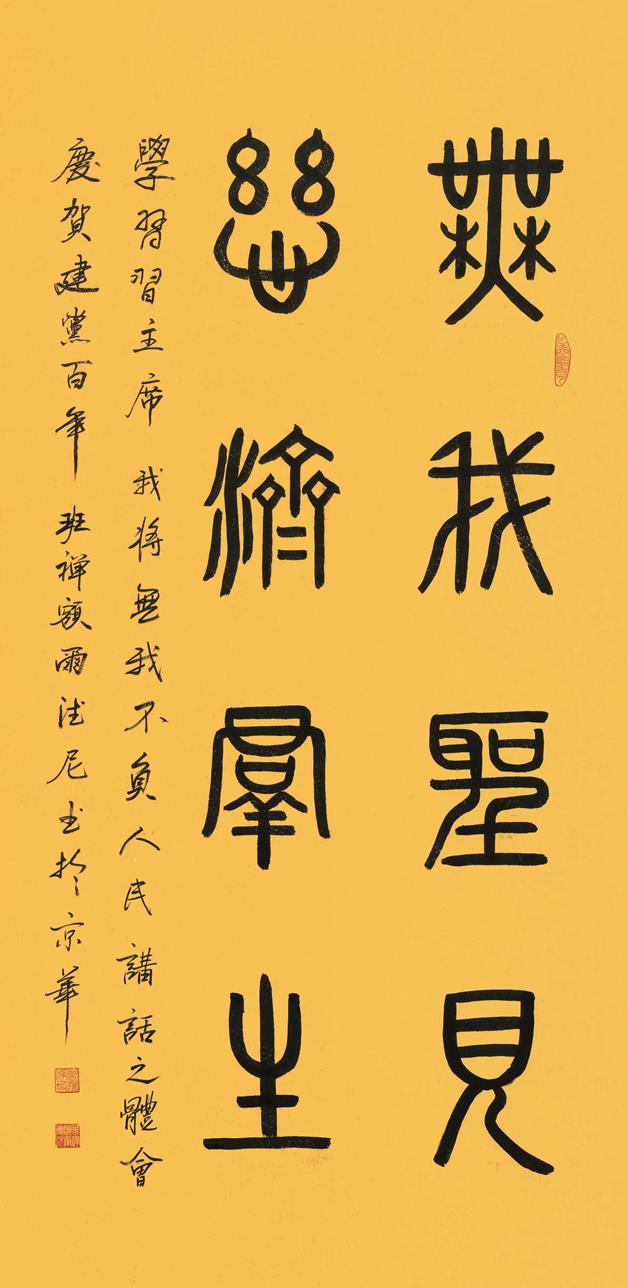 無我聖見
慈濟羣生
學習習主席 我將無我不負人民講話之體會
慶賀建黨百年 班禪額爾德尼书於京華